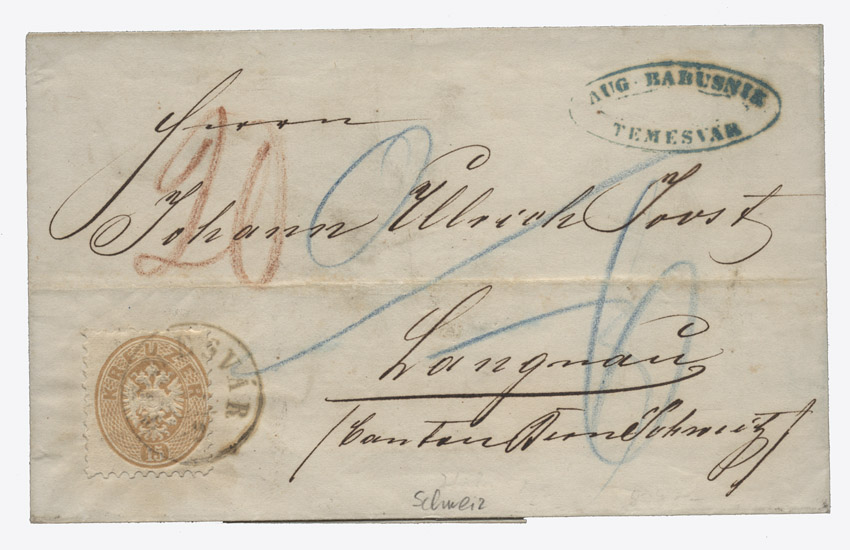 AUG. BABUSNIK
TEMESVÁR
Herrn
20
Johann Ullrich Joost
6
Langnau
Canton Bern Schweitz
KREUZER
15
SVÁR
Schweiz